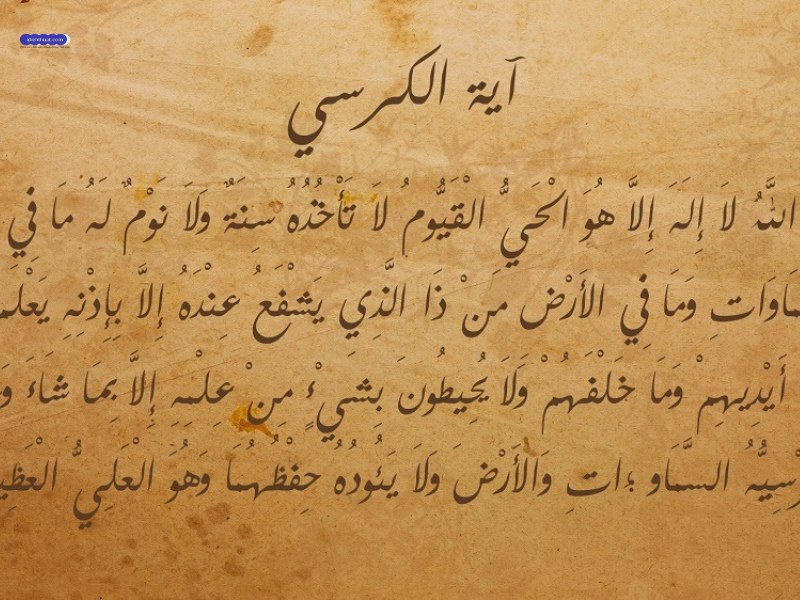 آية الكرسي
اللَّهُ لَا إِلَهَ إِلَّا هُوَ الْحَيُّ الْقَيُّومُ لَا تَأْخُذُهُ سِنَةٌ وَلَا نَوْمٌ لَهُ مَا فِي
مَاوَاتِ وَمَا فِي الأَرْضِ مَنْ ذَا الَّذِي يَشْفَعُ عِنْدَهُ إِلَّا بِإِذْنِهِ يَعْلَم
أَيْدِيهِمْ وَمَا خَلْفَهُمْ وَلَا يُحِيطُونَ بِشَيْءٍ مِنْ عِلْمِهِ إِلَّا بِمَا شَاءَ وَ
ْسِيُّهُ السَّمَاو ءاتِ وَالأَرْضَ وَلَا يَئُودُهُ حِفْظُهُمَا وَهُوَ الْعَلِيُّ الْعَظِي